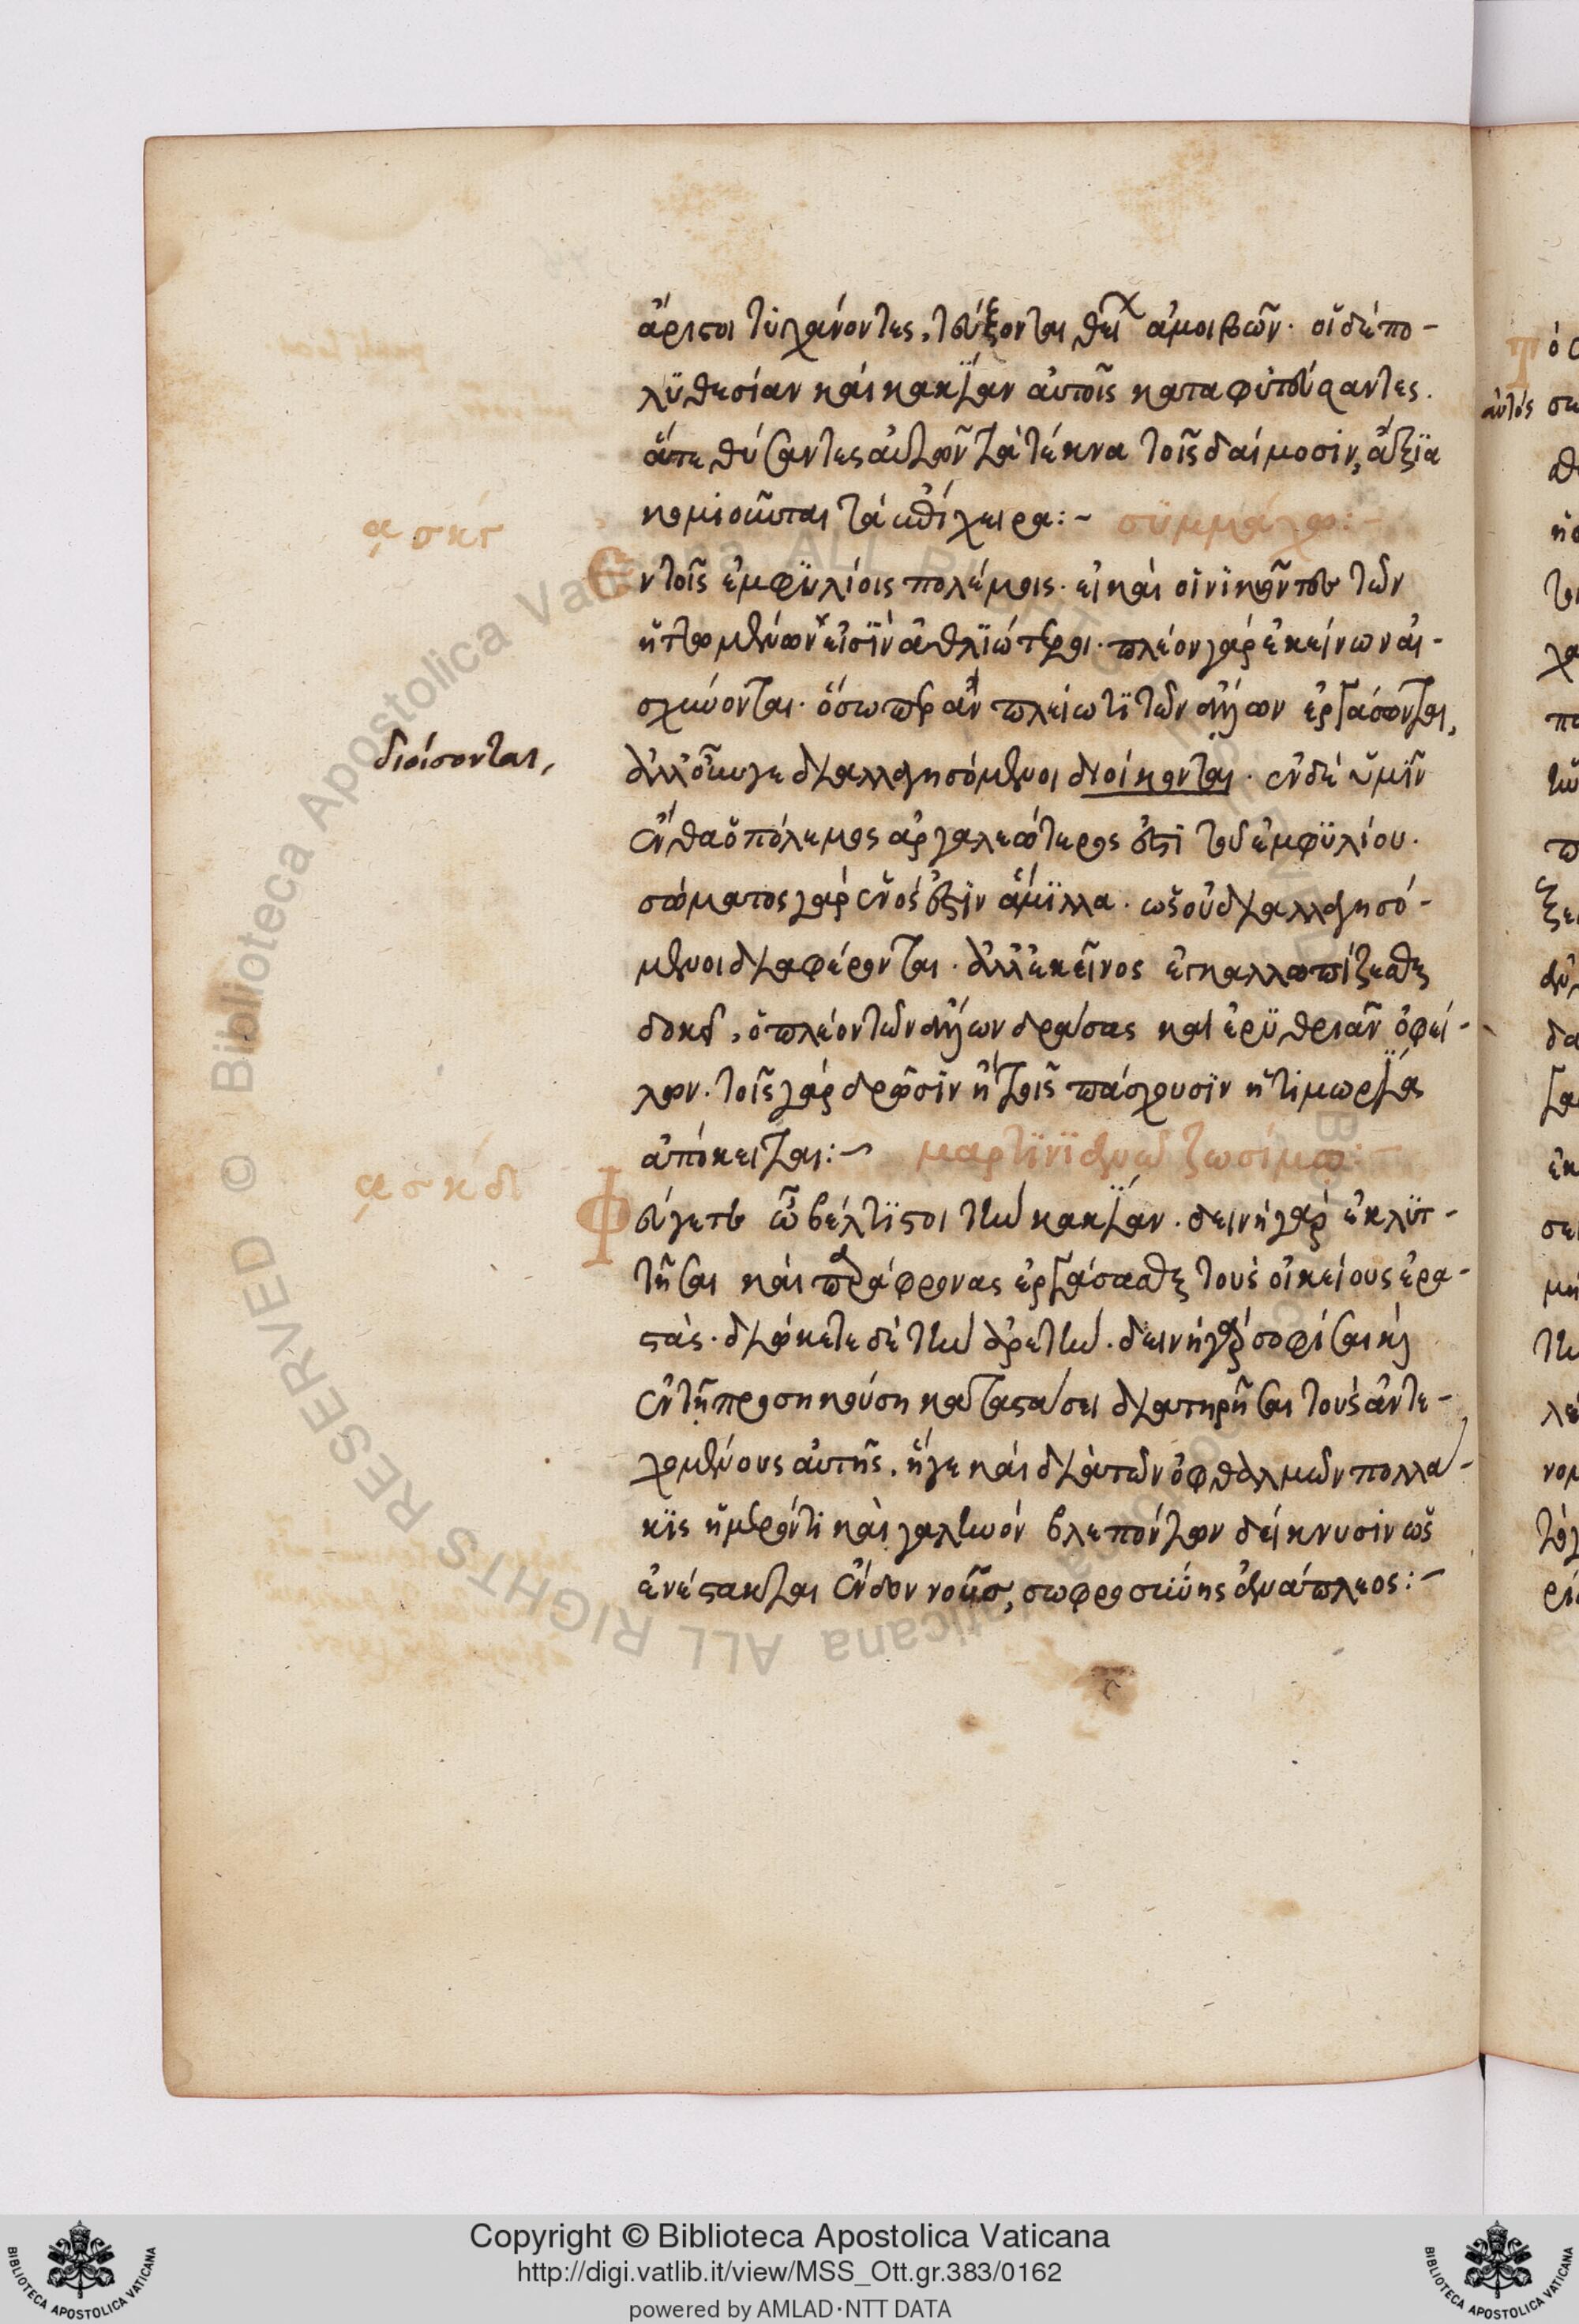 ἄριστοι τυγχάνοντες, τεύξονται θείων ἀμοιβῶν. οἱ δὲ πο-
λυθεΐαν καὶ κακίαν αὐτοῖς καταφυτεύσαντες.
ἅτε θύσαντες αὐτῶν τὰ τέκνα τοῖς δαίμοσιν, ἄξια
κομιοῦνται τὰ ἐπίχειρα:~ συμμάχω:~
͵α σκγ
Ἐν τοῖς ἐμφυλίοις πολέμοις. εἰ καὶ οἱ νικῶντες τῶν
ἡττωμένων εἰσὶν ἀθλιώτεροι. πλέον γὰρ ἐκείνων αἰ-
σχύνονται. ὅσωπερ ἂν πλείω τι τῶν δεινῶν ἐργάσωνται,
ἀλλ' οὖν γε διαλλαγησόμενοι διοίκονται. ἐν δὲ ὑμῖν
διοίσονται,
ἔνθα ὁ πόλεμος ἀργαλεώτερός ἐστι τοῦ ἐμφυλίου.
σώματος γὰρ ἑνός ἐστιν ἅμιλλα. ὡς οὐ διαλλαγησό-
μενοι διαφέρονται. ἀλλ' ἐκεῖνος ἐγκαλλωπίζεσθαι
δοκεῖ, ὁ πλέον τῶν ἄλλων δράσας καὶ ἐρυθριᾶν ὀφεί-
λων. τοῖς γὰρ δρῶσιν ἢ τοῖς πάσχουσιν ἡ τιμωρία
ἀπόκειται:~ μαρτινιανῶ ζωσίμω:~
͵α σκδ
Φεύγετε ὦ βέλτιστοι τὴν κακίαν. δεινὴ γὰρ ἐκλυτ-
τῆσαι καὶ παράφρονας ἐργάσασθαι τοὺς οἰκείους ἐρα-
στάς. διώκετε δὲ τὴν ἀρετήν. δεινὴ γὰρ σοφίσαι καὶ
ἐν τῇ προσηκούσῃ καταστάσει διατηρῆσαι τοὺς ἀντε-
χομένους αὐτῆς. ἥ γε καὶ διὰ τῶν ὀφθαλμῶν πολλά-
κις ἥμερόν τι καὶ γαληνὸν βλεπόντων δείκνυσιν ὡς
ἀνέστακται ἔνδον νοῦς, σωφροσύνης ἀνάπλεος:~
Copyright © Biblioteca Apostolica Vaticana
http://digi.vatlib.it/view/MSS_Ott.gr.383/0162
powered by AMLAD·NTT DATA